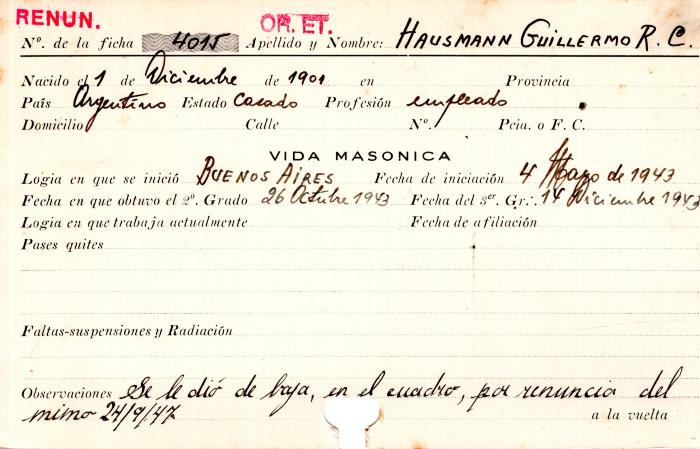 RENUN.
OR. ET.
Nº. de la ficha 4015 Apellido y Nombre: HAUSMANN GUILLERMO R. C.
Nacido el 1 de Diciembre de 1901 en Provincia
País Argentino Estado Casado Profesión empleado
Domicilio Calle Nº. Pcia. o F. C.
VIDA MASONICA
Logia en que se inició BUENOS AIRES Fecha de iniciación 4 Mayo de 1943
Fecha en que obtuvo el 2º. Grado 26 Octubre 1943 Fecha del 3er. Gr∴ 14 Diciembre 1943
Logia en que trabaja actualmente Fecha de afiliación
Pases quites
Faltas-suspensiones y Radiación
Observaciones Se le dió de baja, en el cuadro, por renuncia del
mimo 24/9/47 a la vuelta